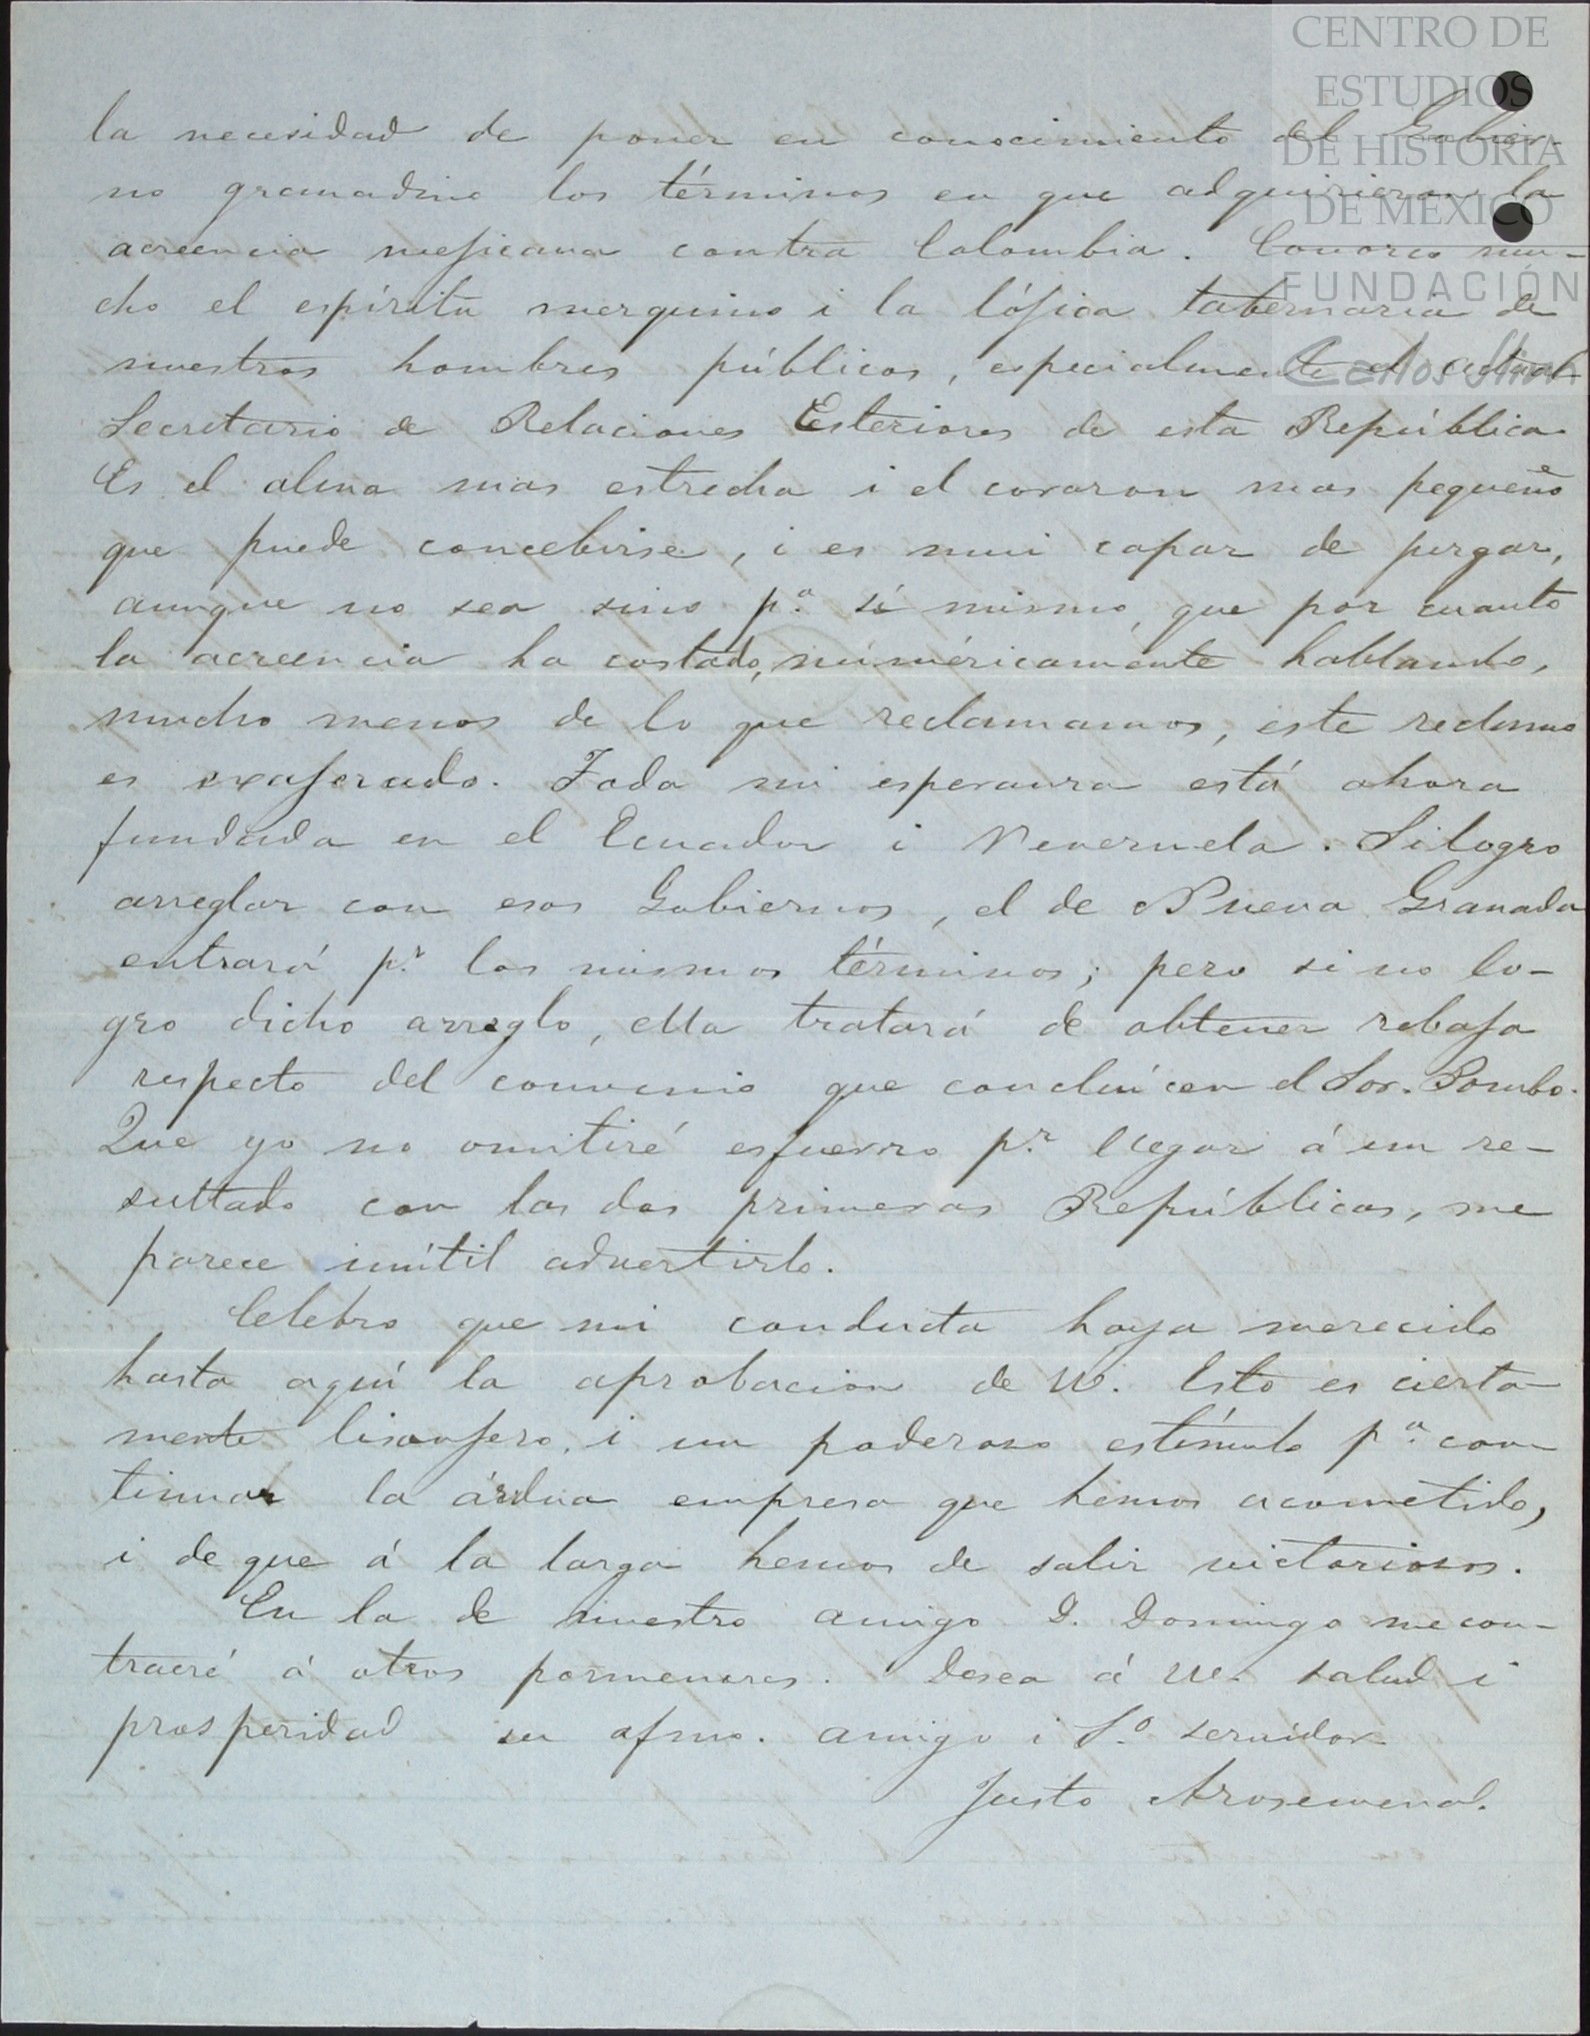 CENTRO DE
ESTUDIOS
DE HISTORIA
DE MÉXICO
FUNDACIÓN
Carlos Slim
la necesidad de poner en conocimiento del Gobier-
no granadino los términos en que adquirieron la
acreencia mejicana contra Colombia. Conozco mu-
cho el espíritu mezquino i la lójica tabernaria de
nuestros hombres públicos, especialmente el actual
Secretario de Relaciones Esteriores de esta República.
Es el alma mas estrecha i el corazon mas pequeño
que puede concebirse, i es mui capaz de juzgar,
aunque no sea sino pª. sí mismo, que por cuanto
la acreencia ha costado, numéricamente hablando,
mucho menos de lo que reclamamos, este reclamo
es exajerado. Toda mi esperanza está ahora
fundada en el Ecuador i Venezuela. Si logro
arreglar con esos Gobiernos, el de Nueva Granada
entrará pr. los mismos términos; pero si no lo-
gro dicho arreglo, ella tratará de obtener rebaja
respecto del convenio que concluí con el Sor. Pombo.
Que yo no omitiré esfuerzo pr. llegar á un re-
sultado con las dos primeras Repúblicas, me
parece inútil advertirlo.
Celebro que mi conducta haya merecido
hasta aquí la aprobacion de U. Esto es cierta-
mente lisonjero, i un poderoso estímulo pª. con
tinuar la árdua empresa que hemos acometido,
i de que á la larga hemos de salir victoriosos.
En la de nuestro amigo D. Domingo me con-
traeré á otros pormenores. Desea á U. salud i
prosperidad su afmo. amigo i Sº. servidor
Justo Arosemena.